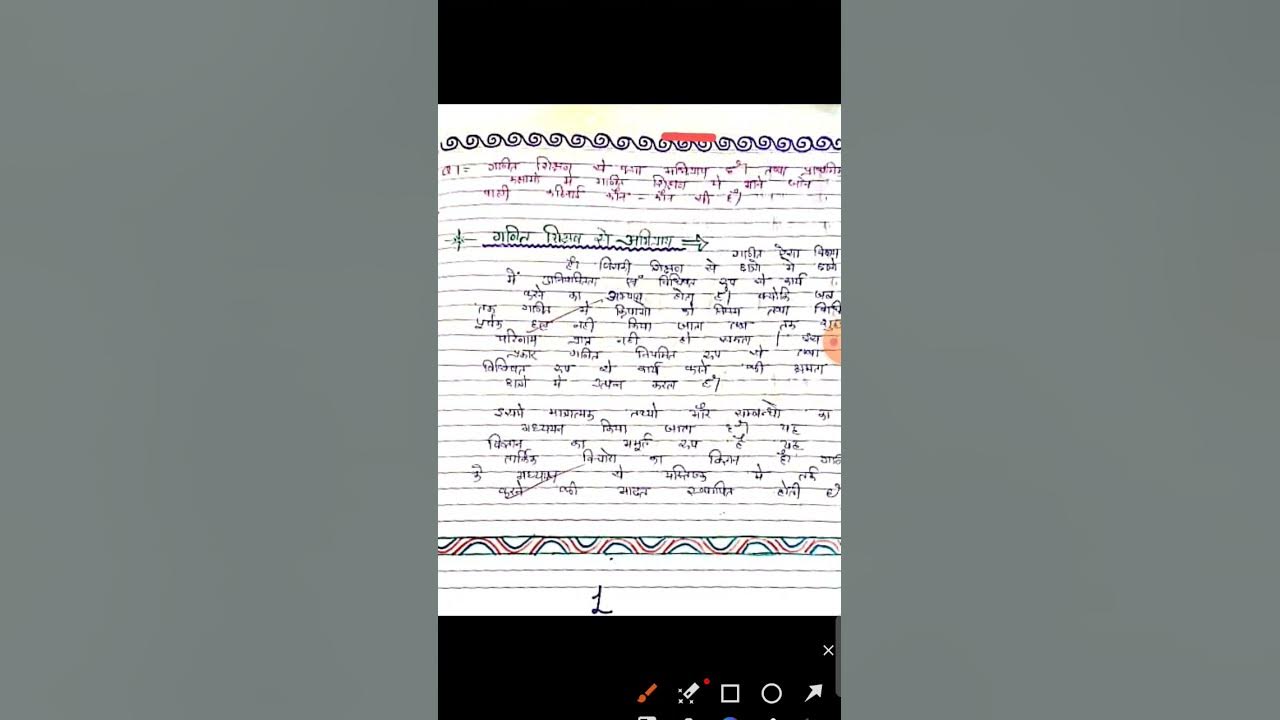 Q1= गणित शिक्षण से क्या अभिप्राय है। तथा प्राथमिक
कक्षाओ मे गणित शिक्षण मे आने जाने
वाली कठिनाई कौन - कौन सी है।
गणित शिक्षण से अभिप्राय ⇒
गणित ऐसा विषय
है। जिसकी शिक्षण से छात्रो मे
में अनियमितता एवं विधिवत रूप से कार्य
करने का अभ्यास होता है। क्योकि जब
तक गणित मे क्रियाओ को नियम तथा
पूर्वक हल नही किया जाता तब तक शुद्ध
परिणाम प्राप्त नही हो सकता । इस
प्रकार गणित नियमित रूप से तथा
विधिवत रूप से कार्य करने की क्षमता
छात्रो मे उत्पन्न करता है।
इसमे मात्रात्मक तथ्यो और सम्बन्धो का
अध्ययन किया जाता है। यह
विज्ञान का अमूर्त रूप है यह
तार्किक विचारो का विज्ञान है। गणित
के अध्ययन से मस्तिष्क मे तर्क
करने की आदत स्थापित होती है
1